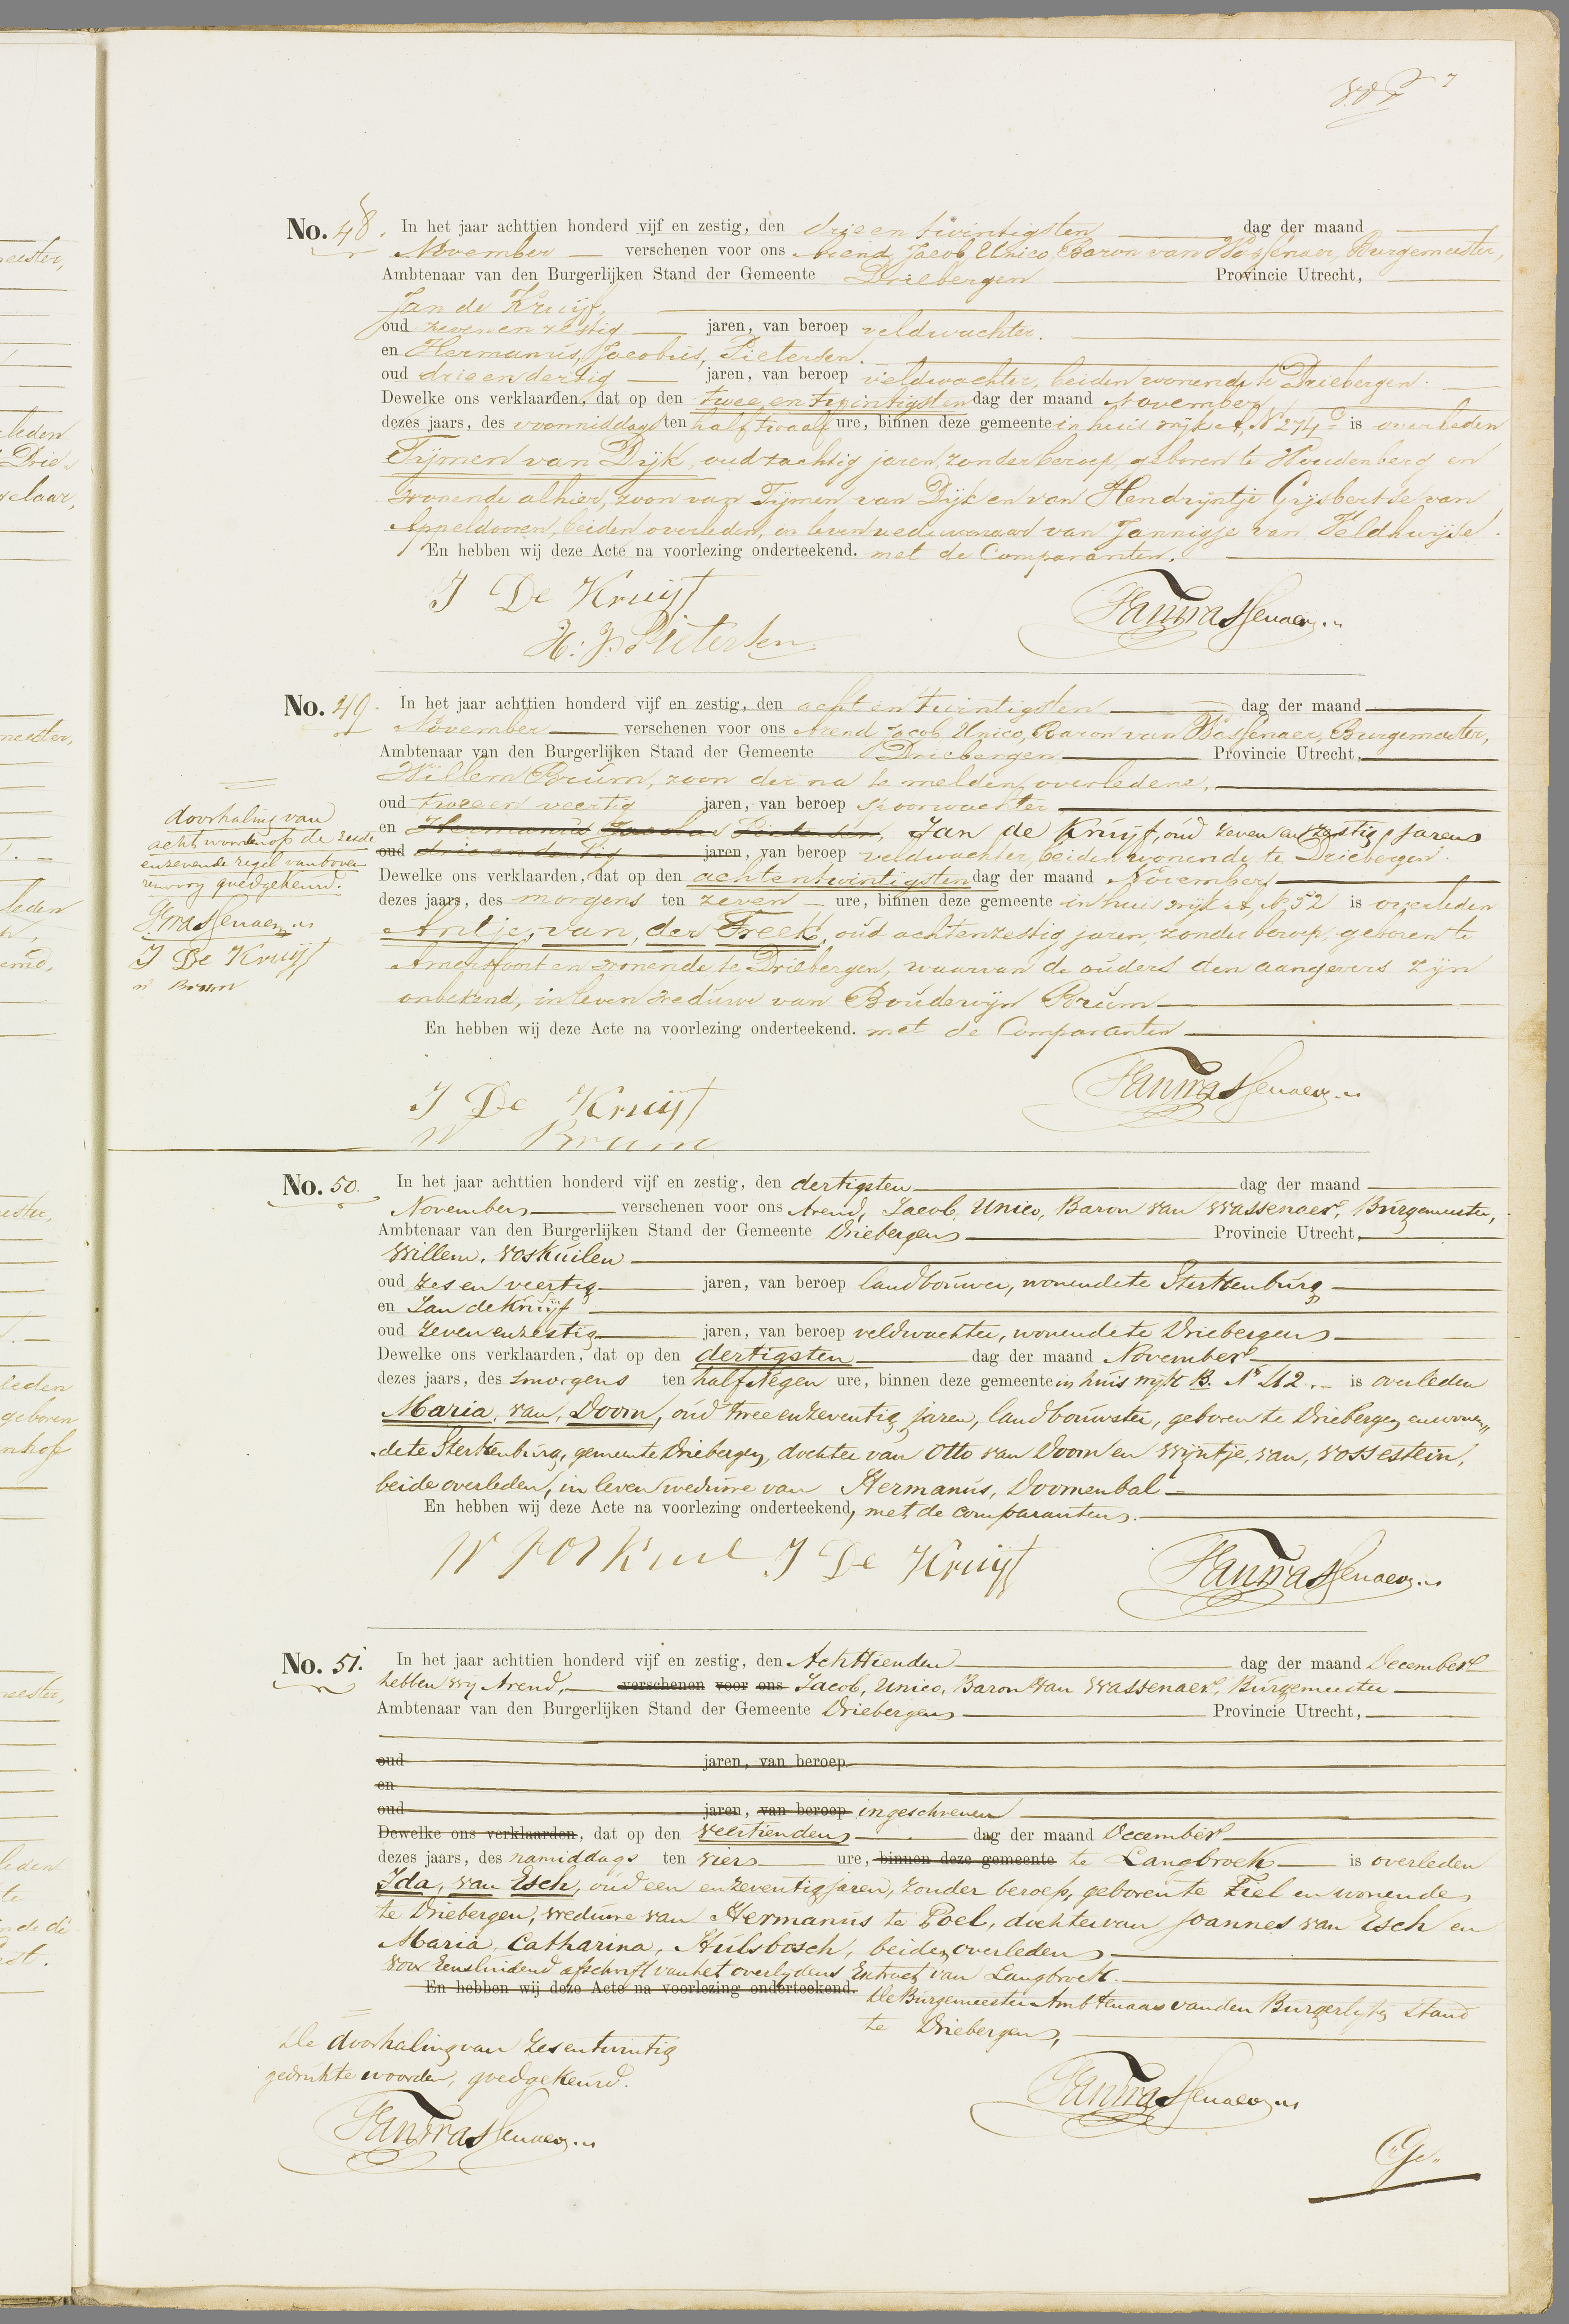 No. 48. In het jaar achttien honderd vijf en zestig, den drie en twintigsten dag der maand
November verschenen voor ons Arend, Jacob, Unico, Baron van Wassenaer, Burgemeester,
Ambtenaar van den Burgerlijken Stand der Gemeente Driebergen Provincie Utrecht,
Jan de Kruijf,
oud zeven en zestig jaren, van beroep veldwachter.
en Hermanus, Jacobus, Pietersen.
oud drie en dertig jaren, van beroep veldwachter, beiden wonende te Driebergen.
Dewelke ons verklaarden, dat op den twee en twintigsten dag der maand November
dezes jaars, des voormiddags ten half twaalf ure, binnen deze gemeente in huis wijk A, No 274 is overleden
Tijmen van Dijk, oud tachtig jaren, zonder beroep, geboren te Woudenberg en
wonende alhier, zoon van Tijmen van Dijk en van Hendrijntje Gijsbertse van
Appeldooren, beiden overleden, in leven weduwenaar van Jannigje van Veldhuijse.
En hebben wij deze Acte na voorlezing onderteekend. met de Comparanten.
J De Kruijf
H. J. Pietersen
No. 49. In het jaar achttien honderd vijf en zestig, den acht en twintigsten dag der maand
November verschenen voor ons Arend Jacob Unico, Baron van Wassenaer, Burgemeester,
Ambtenaar van den Burgerlijken Stand der Gemeente Driebergen Provincie Utrecht,
Willem Brum, zoon der na te melden overledene,
oud twee en veertig jaren, van beroep spoorwachter
en Hermanus Jacobus Pietersen, Jan de Kruijf, oud zeven en zestig jaren
oud drie en dertig jaren, van beroep veldwachter, beiden wonende te Driebergen.
Dewelke ons verklaarden, dat op den acht en twintigsten dag der maand November
dezes jaars, des morgens ten zeven ure, binnen deze gemeente in huis wijk A, No 52 is overleden
Antje, van, der Freek, oud acht en zestig jaren, zonder beroep, geboren te
Amersfoort en wonende te Driebergen, waarvan de ouders den aangevers zijn
onbekend, in leven weduwe van Boudewijn Brum
En hebben wij deze Acte na voorlezing onderteekend. met de Comparanten
doorhaling van
acht woorden op de zesde
en zevende regel van boven
goedgekeurd.
J De Kruijf
W Brum
J De Kruijf
W Brum
No. 50. In het jaar achttien honderd vijf en zestig, den dertigsten dag der maand
November verschenen voor ons Arend, Jacob, Unico, Baron van Wassenaer, Burgemeester,
Ambtenaar van den Burgerlijken Stand der Gemeente Driebergen Provincie Utrecht,
Willem, Voskuilen
oud zes en veertig jaren, van beroep landbouwer, wonende te Sterkenburg
en Jan de Kruijf
oud zeven en zestig jaren, van beroep veldwachter, wonende te Driebergen
Dewelke ons verklaarden, dat op den dertigsten dag der maand November
dezes jaars, des smorgens ten half Negen ure, binnen deze gemeente in huis wijk B. No 42. is overleden
Maria, van, Doorn, oud twee en zeventig jaren, landbouwster, geboren te Driebergen en wonen„
de te Sterkenburg, gemeente Driebergen, dochter van Otto van Doorn en Wijntje, van, Vossestein,
beide overleden, in leven weduwe van Hermanus, Doornenbal
En hebben wij deze Acte na voorlezing onderteekend, met de comparanten.
W Voskuil J De Kruijf
No. 51. In het jaar achttien honderd vijf en zestig, den Achttienden dag der maand December
hebben wij Arend, verschenen voor ons Jacob, Unico, Baron van Wassenaer, Burgemeester
Ambtenaar van den Burgerlijken Stand der Gemeente Driebergen Provincie Utrecht,
oud jaren, van beroep
en
oud jaren, van beroep ingeschreven
Dewelke ons verklaarden, dat op den veertienden dag der maand December
dezes jaars, des namiddags ten vier ure, binnen deze gemeente te Langbroek is overleden
Ida, van Esch, oud een en zeventig jaren, zonder beroep, geboren te Tiel en wonende
te Driebergen, weduwe van Hermanus te Poel, dochter van Joannes van Esch en
Maria, Catharina, Hulsbosch, beiden overleden
Voor Eensluidend afschrift van het overlydens Extract van Langbroek.
En hebben wij deze Acte na voorlezing onderteekend.
De Burgemeester Ambtenaar van den Burgerlyken Stand
te Driebergen,
De doorhaling van zes en twintig
gedrukte woorden, goedgekeurd.